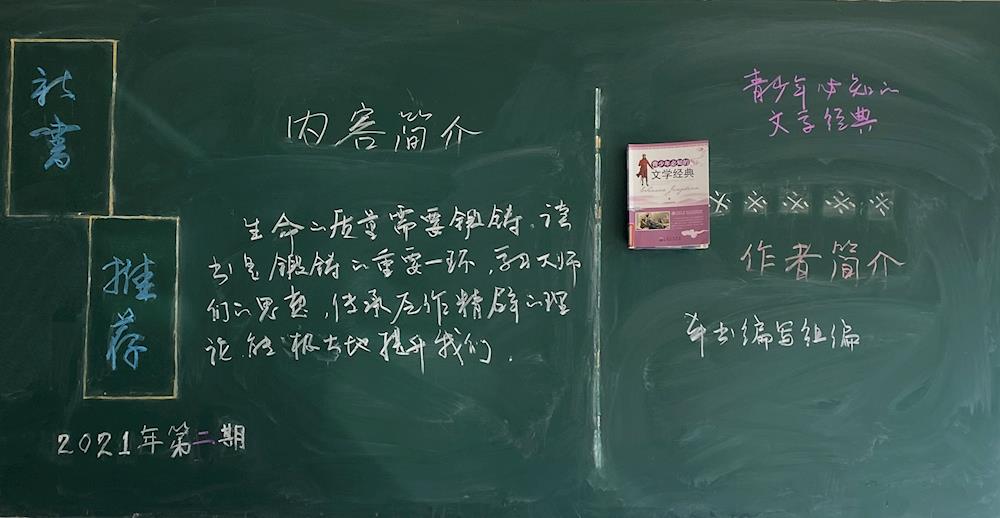 新書
推荐
2021年第二期
内容简介
生命的质量需要锻铸,读
书是锻铸的重要一环,学习大师
们的思想,传承作精辟的理
论,能极大地提升我们.
青少年必知的
文学经典
青少年必知的
文学经典
※ ※ ※ ※ ※
作者简介
本书编写组编